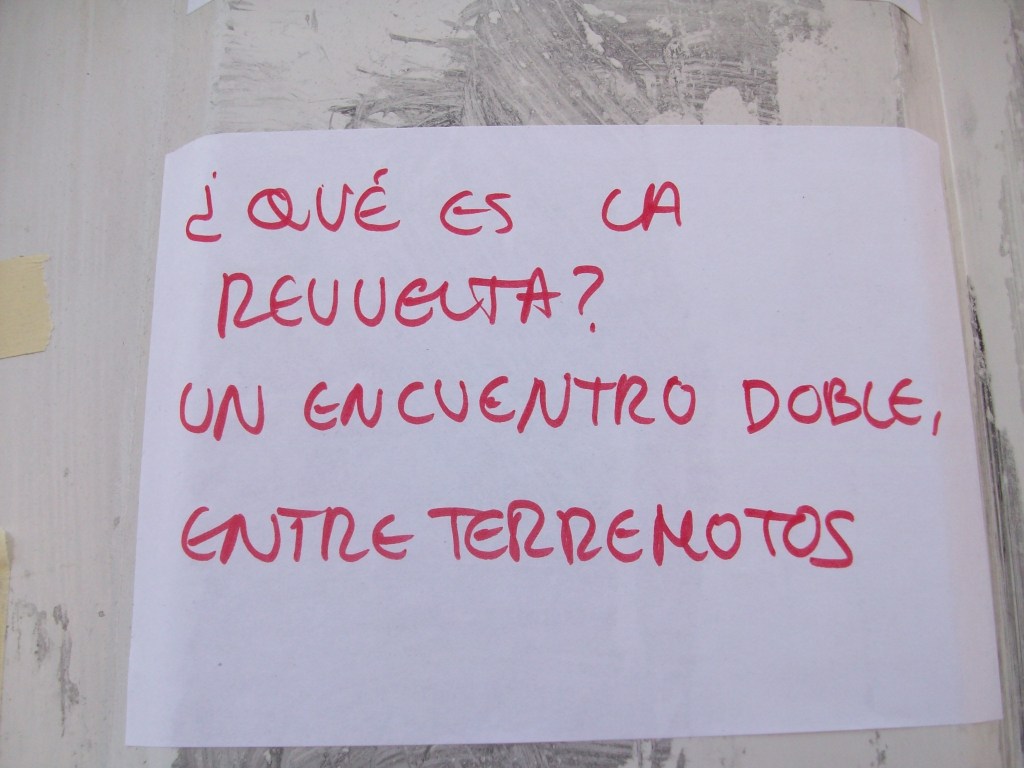 ¿QUÉ ES LA
REVUELTA?
UN ENCUENTRO DOBLE,
ENTRE TERREMOTOS